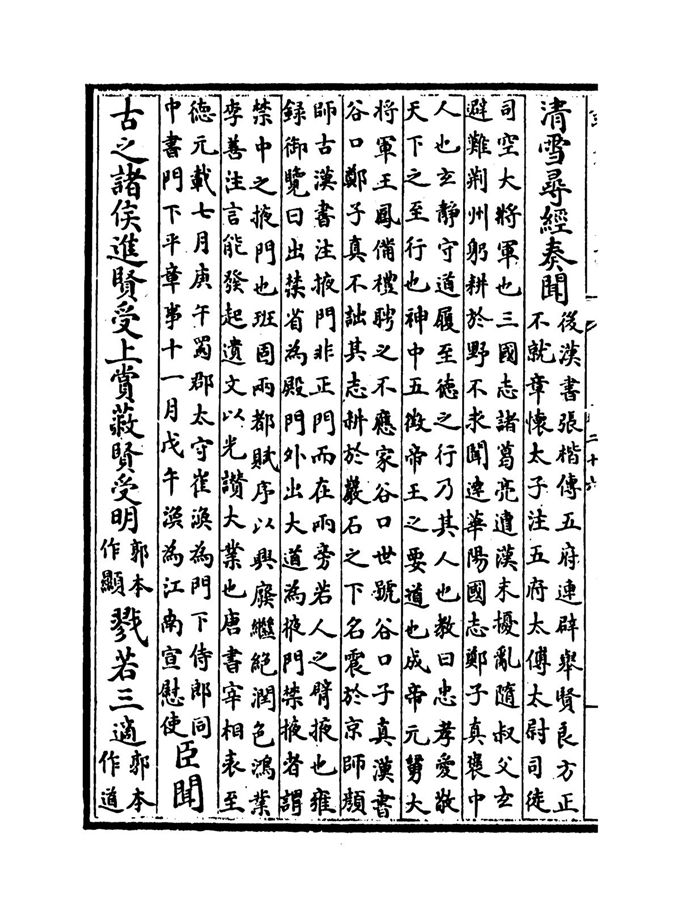 清雪尋經奏聞
後漢書張楷傳五府連辟舉賢良方正
不就章懷太子注五府太傅太尉司徒
司空大將軍也三國志諸葛亮遭漢末擾亂隨叔父玄
避難荆州躬耕於野不求聞達華陽國志鄭子真襃中
人也玄靜守道履至德之行乃其人也教曰忠孝愛敬
天下之至行也神中五徴帝王之要道也成帝元舅大
將軍王鳳備禮聘之不應家谷口世號谷口子真漢書
谷口鄭子真不詘其志耕於巖石之下名震於京師顔
師古漢書注掖門非正門而在兩旁若人之臂掖也雍
録御覽曰出禁省為殿門外出大道為掖門禁掖者謂
禁中之掖門也班固兩都賦序以興廢繼絶潤色鴻業
李善注言能發起遺文以光讃大業也唐書宰相表至
德元載七月庚午蜀郡太守崔渙為門下侍郎同
中書門下平章事十一月戊午渙為江南宣慰使
臣聞
古之諸侯進賢受上賞蔽賢受明
郭本
作顯
戮若三適
郭本
作道